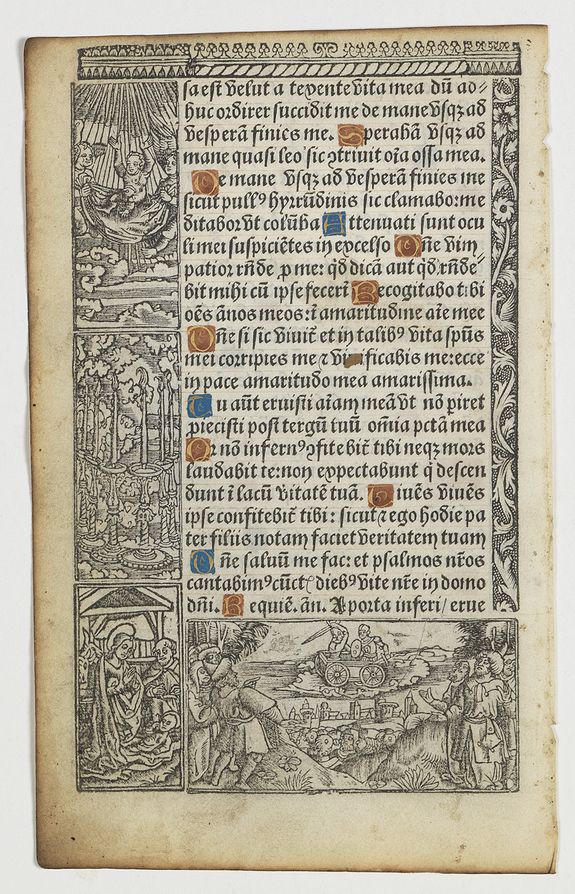 sa est velut a texente vita mea dū ad⸗
huc ordirer succidit me de mane vsqꝫ ad
vesperā finies me. Sperabā vsqꝫ ad
mane quasi leo sic ꝯtriuit oīa ossa mea.
De mane vsqꝫ ad vesperā finies me
sicut pullꝰ hyrrūdinis sic clamabo:me
ditabor vt colūba Attenuati sunt ocu
li mei suspiciētes in excelso Dñe vim
patior rñde ꝓ me: qd̄ dicā aut qd̄ rñde⸗
bit mihi cū ipse fecerī Recogitabo tibi
oēs ānos meos:ī amaritudine aīe mee
Dñe si sic viuit̄ et in talibꝰ vita spūs
mei corripies me ⁊ viuificabis me:ecce
in pace amaritudo mea amarissima.
Tu aūt eruisti aīam meā vt nō piret
ꝓiecisti post tergū tuū omīa pctā mea
nō infernꝰ ꝯfitebit̄ tibi neqꝫ mors
laudabit te:non expectabunt q̄ descen
dunt ī lacū vitatē tuā. Viuēs viuēs
ipse confitebit̄ tibi: sicut ⁊ ego hodie pa
ter filiis notam faciet veritatem tuam
Dñe saluū me fac: et psalmos nr̄os
cantabimꝰ cūct diebꝰ vite nr̄e in domo
dñi. Requiē. añ. A porta inferi/ erue